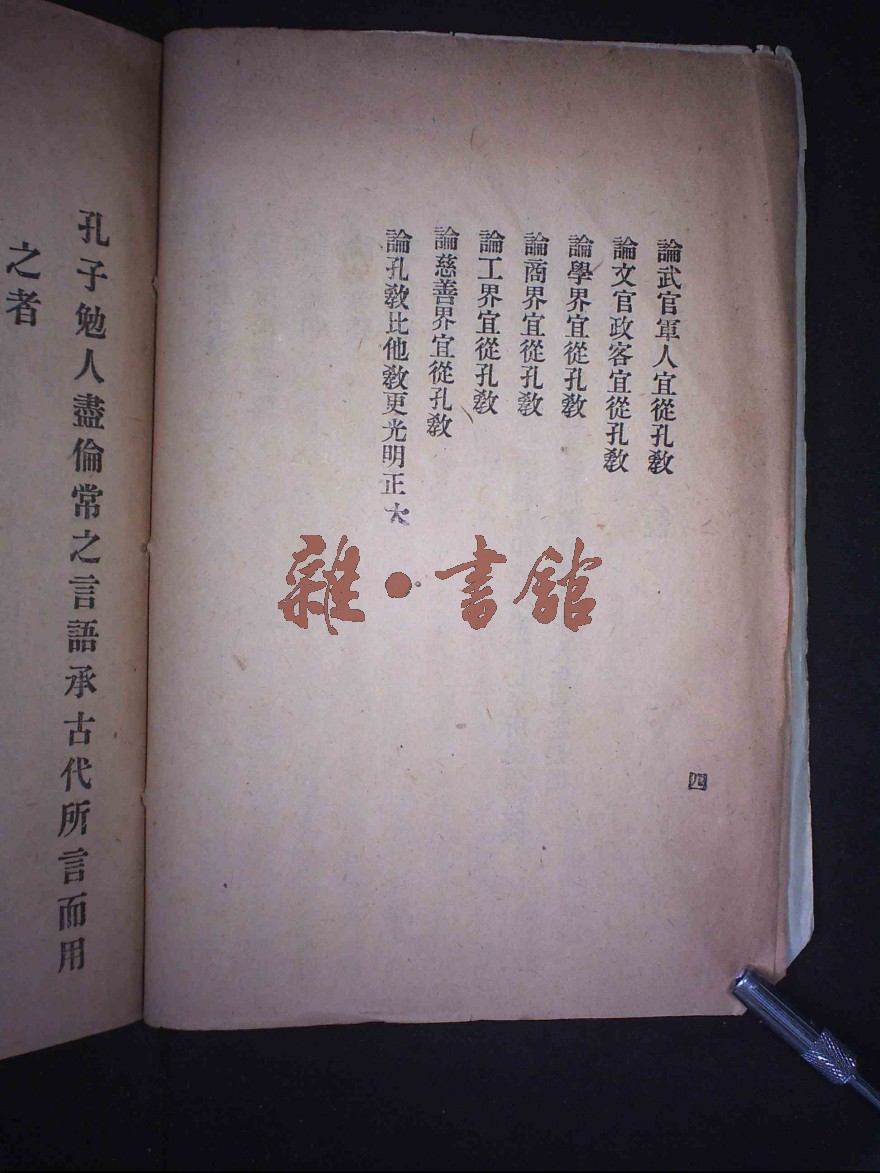 論武官軍人宜從孔教
論文官政客宜從孔教
論學界宜從孔教
論商界宜從孔教
論工界宜從孔教
論慈善界宜從孔教
論孔教比他教更光明正大
四
孔子勉人盡倫常之言語承古代所言而用
之者
雜·書館